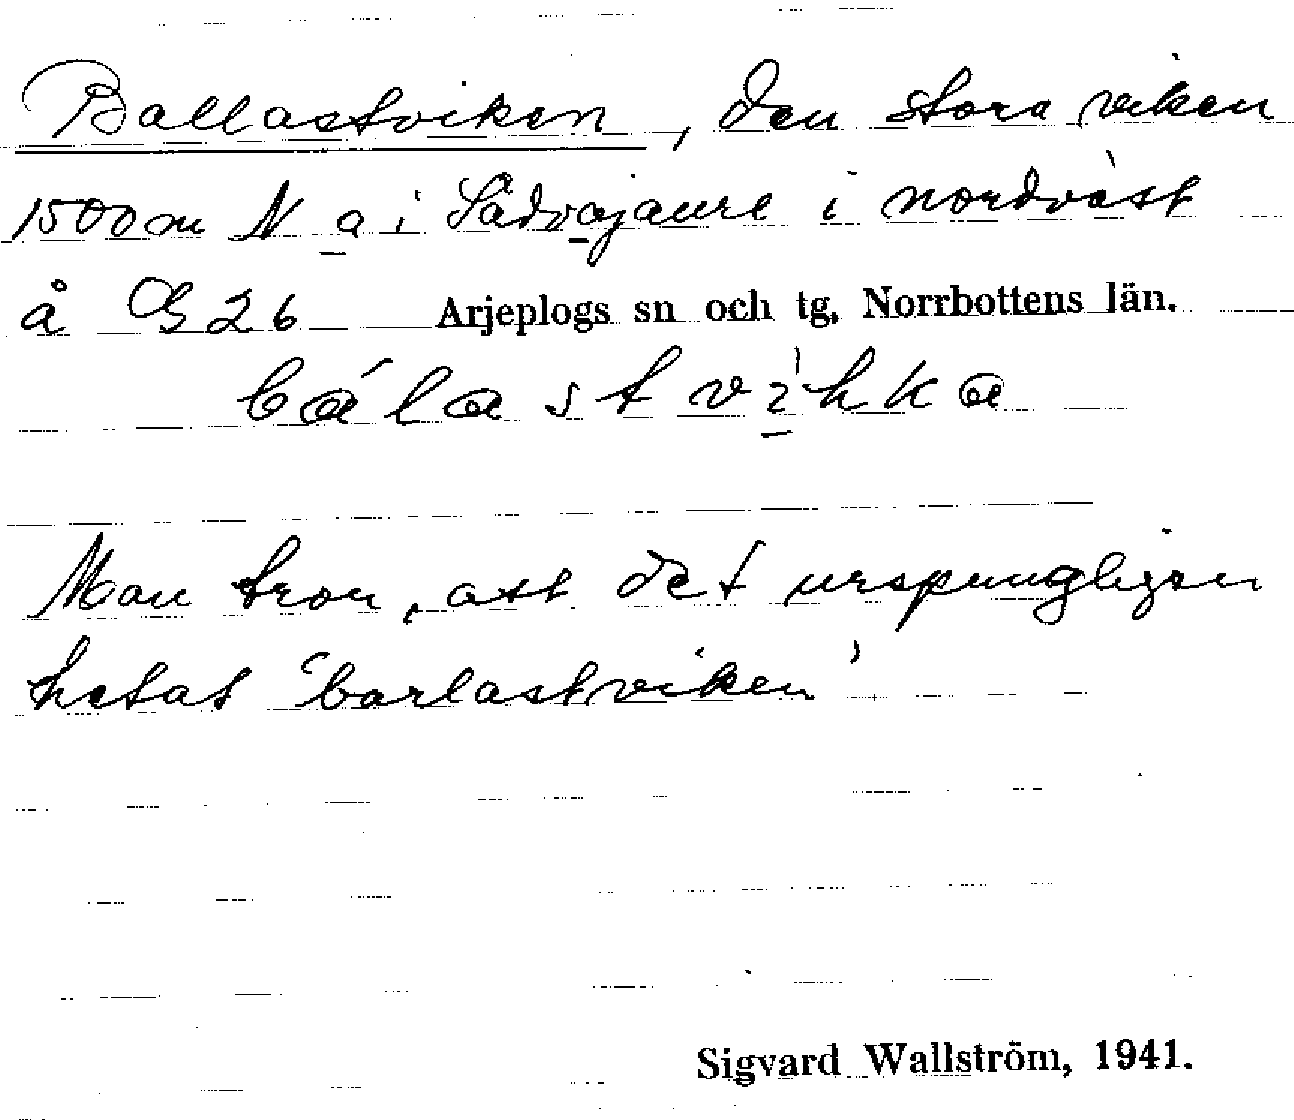 Ballastviken, den stora viken
1500 m N a i Sädvajaure i nordväst
å G 26 Arjeplogs sn och tg, Norrbottens län.
bálastvìhka
Man tror, att det urspungligen
hetat 'barlastviken'
Sigvard Wallström, 1941.